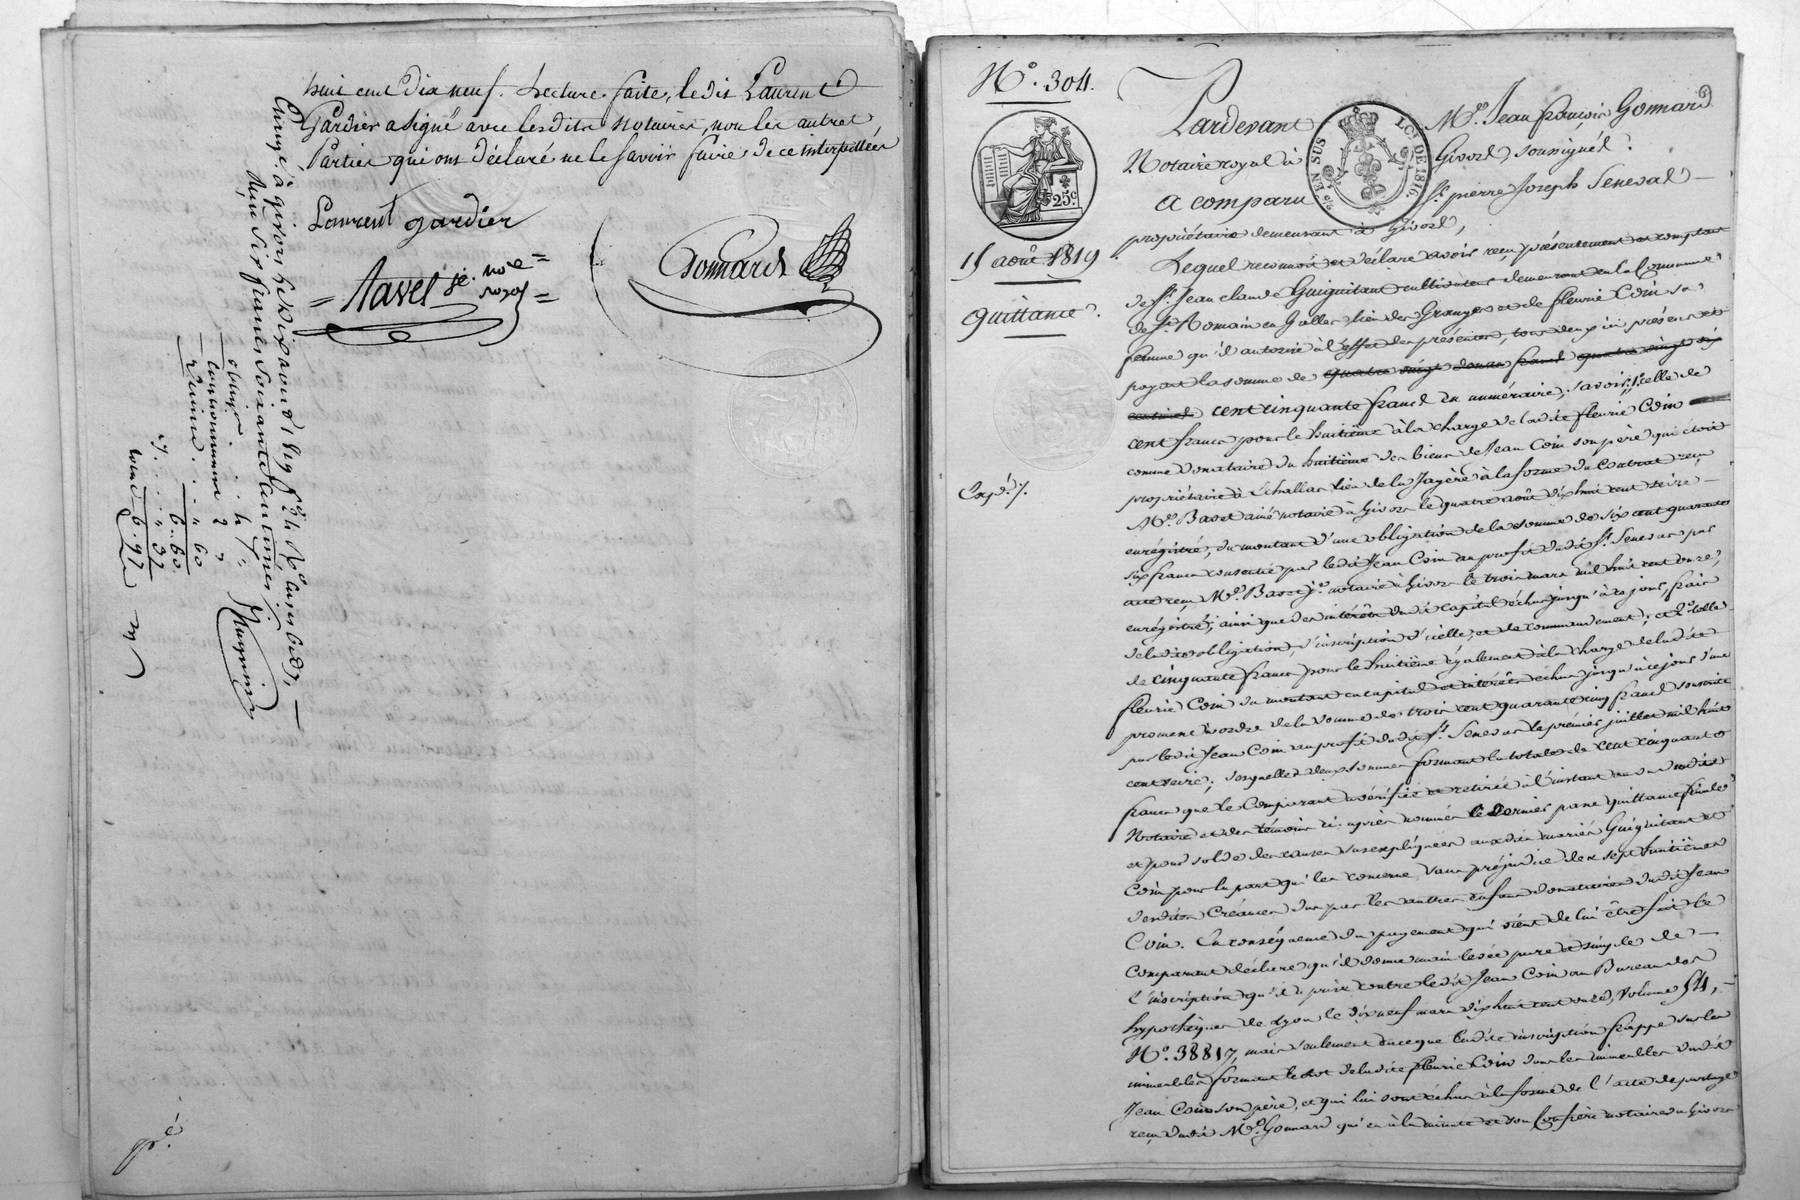 huit cent dix neuf. Lecture faite, ledit Laurent
Gardier a signé avec lesdits Notaires, non les autres
Parties qui ont déclaré ne le savoir faire de ce interpellées
Laurent gardier
= Navel je. nore =
royal =
Gonnard
Enregé. à givors le dix août 1819
Reçu six francs soixante centimes
obligon.
Cautionnement 2
6. 60
" 60
6. 60.
N°. 304.
EN SUS
LOI DE 1816.
25c
15 août 1819
Quittance.
Expée.
Pardevant Me. Jean françois Gonnard
Notaire royal à Givors, soussigné.
A comparu Sr. pierre Joseph Seneval
propriétaire demeurant à Givors,
Lequel reconnoit et déclare avoir reçu présentement et comptant
de Sr. Jean claude Guiguitant cultivateur demeurant en la Commune
de St. Romain en Galler lieu des Granges et de fleurie Coin sa
femme qu'il autorise à l'effet des présentes, tous deux ici présens et
payant la somme de quatre vingt douze francs quatre vingt six
centimes cent cinquante francs en numéraire, savoir; 1°. celle de
cent francs pour le huitième à la charge de ladite fleurie Coin
comme donataire du huitième des biens de Jean Coin son père qui étoit
propriétaire à Echallas lieu de la Jayère à la forme du Contrat reçu
Me. Bavet ainé notaire à Givors le quatre août dix huit cent seize
enrégistré, du montant d'une obligation de la somme de six cent quarante
six francs consentie par ledit Jean Coin au profit dudit Sr. Seneval par
acte reçu Me. Bavet je. notaire à Givors le trois mars mil huit cent onze,
enrégistré; ainsi que des intérêts dudit capital échus jusqu'à ce jour, frais
de ladite obligation d'inscription d'icelle, et de commandement; et 2°. celle
de cinquante francs pour le huitième également à la charge de ladite
fleurie Coin du montant en capital et intérêts échus jusqu'à ce jour d'une
promesse d'ordre de la somme de trois cent quarante cinq francs souscrite
par ledit Jean Coin au profit dudit Sr. Seneval le premier juillet mil huit
cent seize; lesquelles deux sommes formant la totale de cent cinquante
francs que le Comparant a vérifiée et retirée à l'instant au vu dudit
Notaire et des témoins ci-après nommés le dernier passe quittance finale
et pour solde des causes susexpliquées auxdits mariés Guiguitant et
Coin pour la part qui les concerne, sans préjudice des sept huitièmes
desdites Créances dus par les autres enfans donataires dudit Jean
Coin. En conséquence du payement qui vient de lui être fait le
comparant déclare qu'il donne main levée pure et simple de
l'inscription qu'il a prise contre ledit Jean Coin au Bureau des
hypothèques de Lyon le dix neuf mars dix huit cent onze, Volume 54,
N°. 38817, mais seulement en ce que ladite inscription frappe sur les
immeubles formant le lot de ladite fleurie Coin dans les immeubles dudit
Jean Coin son père, et qui lui sont échus à la forme de l'acte de partage
reçu dudit Me. Gonnard qui en a la minute et son Confrère notaires à Givors